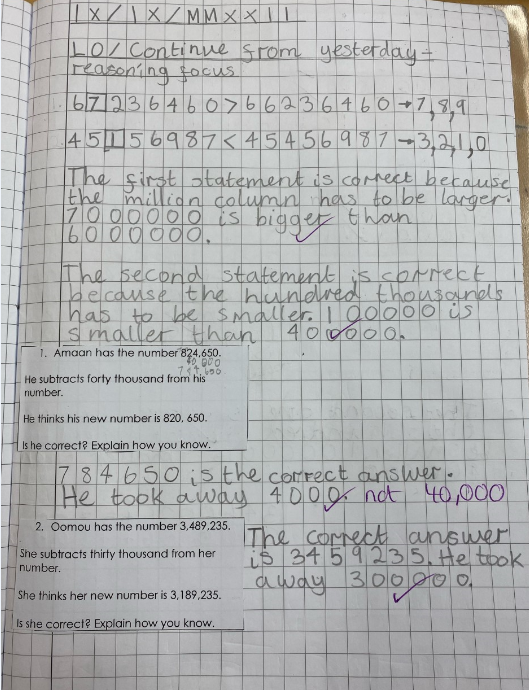 IX/IX/MMXXII
LO/ Continue from yesterday -
reasoning focus
67236460 > 66236460 → 7,8,9
45156987 < 45456987 → 3,2,1,0
The first statement is correct because
the million column has to be larger.
7000000 is bigger than
6000000.
The second statement is correct
because the hundred thousands
has to be smaller. 100000 is
smaller than 400000.
1. Amaan has the number 824,650.
40 000
784,650
He subtracts forty thousand from his
number.
He thinks his new number is 820, 650.
Is he correct? Explain how you know.
784650 is the correct answer.
He took away 4000 not 40,000
2. Oomou has the number 3,489,235.
She subtracts thirty thousand from her
number.
She thinks her new number is 3,189,235.
Is she correct? Explain how you know.
The correct answer
is 3459235. He took
away 300000.